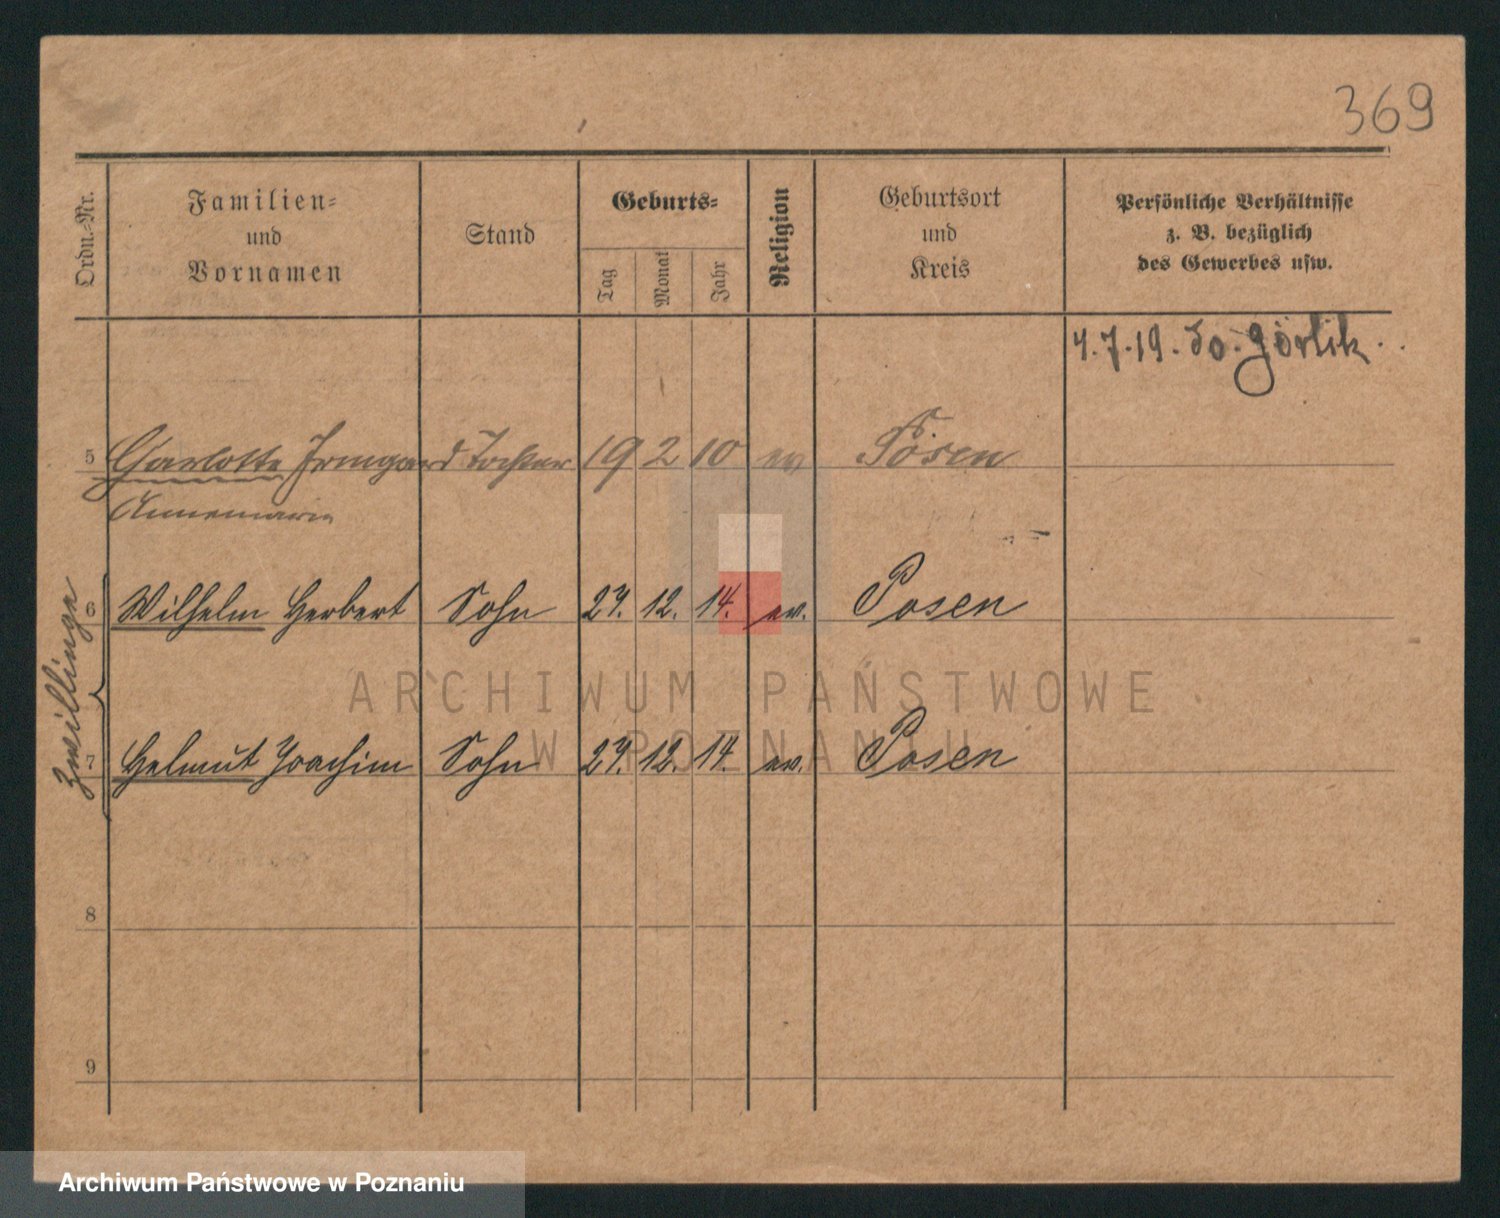 369
Ordn.-Nr.
Familien-
und
Vornamen
Stand
Geburts-
Tag
Monat
Jahr
Religion
Geburtsort
und
Kreis
Persönliche Verhältnisse
z. B. bezüglich
des Gewerbes usw.
4.7.19. So. Görlik.
5 Charlotte Irmgard Tochter 19 2 10 ev Posen
Annemarie
Zwillinge
6 Wilhelm Herbert Sohn 27. 12. 14. ev. Posen
ARCHIWUM PAŃSTWOWE
W POZNANIU
7 Helmut Joachim Sohn 27. 12. 14. ev. Posen
8
9
Archiwum Państwowe w Poznaniu